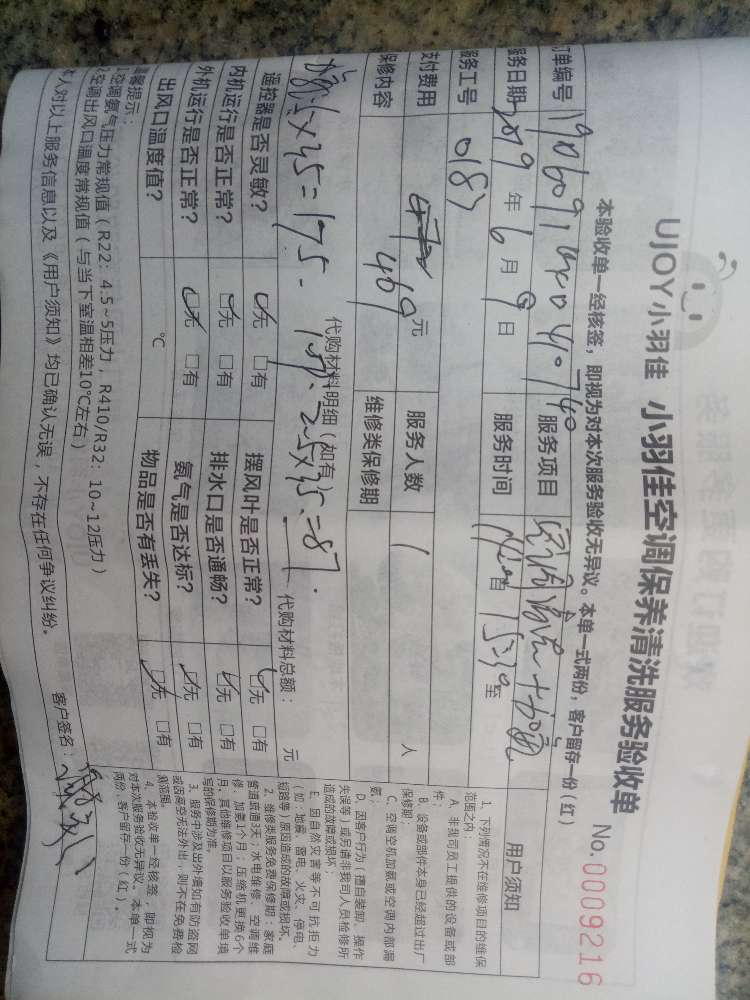 UJOY小羽佳 小羽佳空调保养清洗服务验收单
No.0009216
本验收单一经核签，即视为对本次服务验收无异议。本单一式两份，客户留存一份(红)
订单编号 服务项目
服务日期 2019 年 6 月 9 日 服务时间
服务工号 0183
支付费用 469 元 服务人数 1 人
保修内容 维修类保修期
代购材料明细（如有） 代购材料总额： 元
5×35=175. 2.5×35=87.
遥控器是否灵敏? ☑无 □有 摆风叶是否正常? ☑无 □有
内机运行是否正常? ☑无 □有 排水口是否通畅? ☑无 □有
外机运行是否正常? ☑无 □有 氨气是否达标? ☑无 □有
出风口温度值? ℃ 物品是否有丢失? ☑无 □有
温馨提示：
1.空调氨气压力常规值（R22：4.5~5压力，R410/R32：10~12压力）
2.空调出风口温度常规值（与当下室温相差10℃左右）
本人对以上服务信息以及《用户须知》均已确认无误，不存在任何争议纠纷。
客户签名：
用户须知
1、下列情况不在维修项目的维保
范围之内：
A、非我司员工提供的设备或部
件；
B、设备或部件本身已经超过出厂
保修期；
C、空调空机加氨或空调内部漏
氨；
D、因客户行为（擅自装卸、操作
失误等）或另请非我司人员检修所
造成的故障或损坏；
E、因自然灾害等不可抗拒力
（如：地震、雷电、火灾、停电、
短路等）原因造成的故障或损坏。
2、维修类服务免费保修期：家庭
管道疏通3天；水电维修、空调维
修、加氨1个月；压缩机更换6个
月；其他维修项目以服务验收单填
写的保修期为准。
3、服务中涉及出外墙如有防盗网
或因高空无法外出，则不在免费检
测范围。
4、本验收单一经核签，即视为
对本次服务验收无异议。本单一式
两份，客户留存一份（红）。